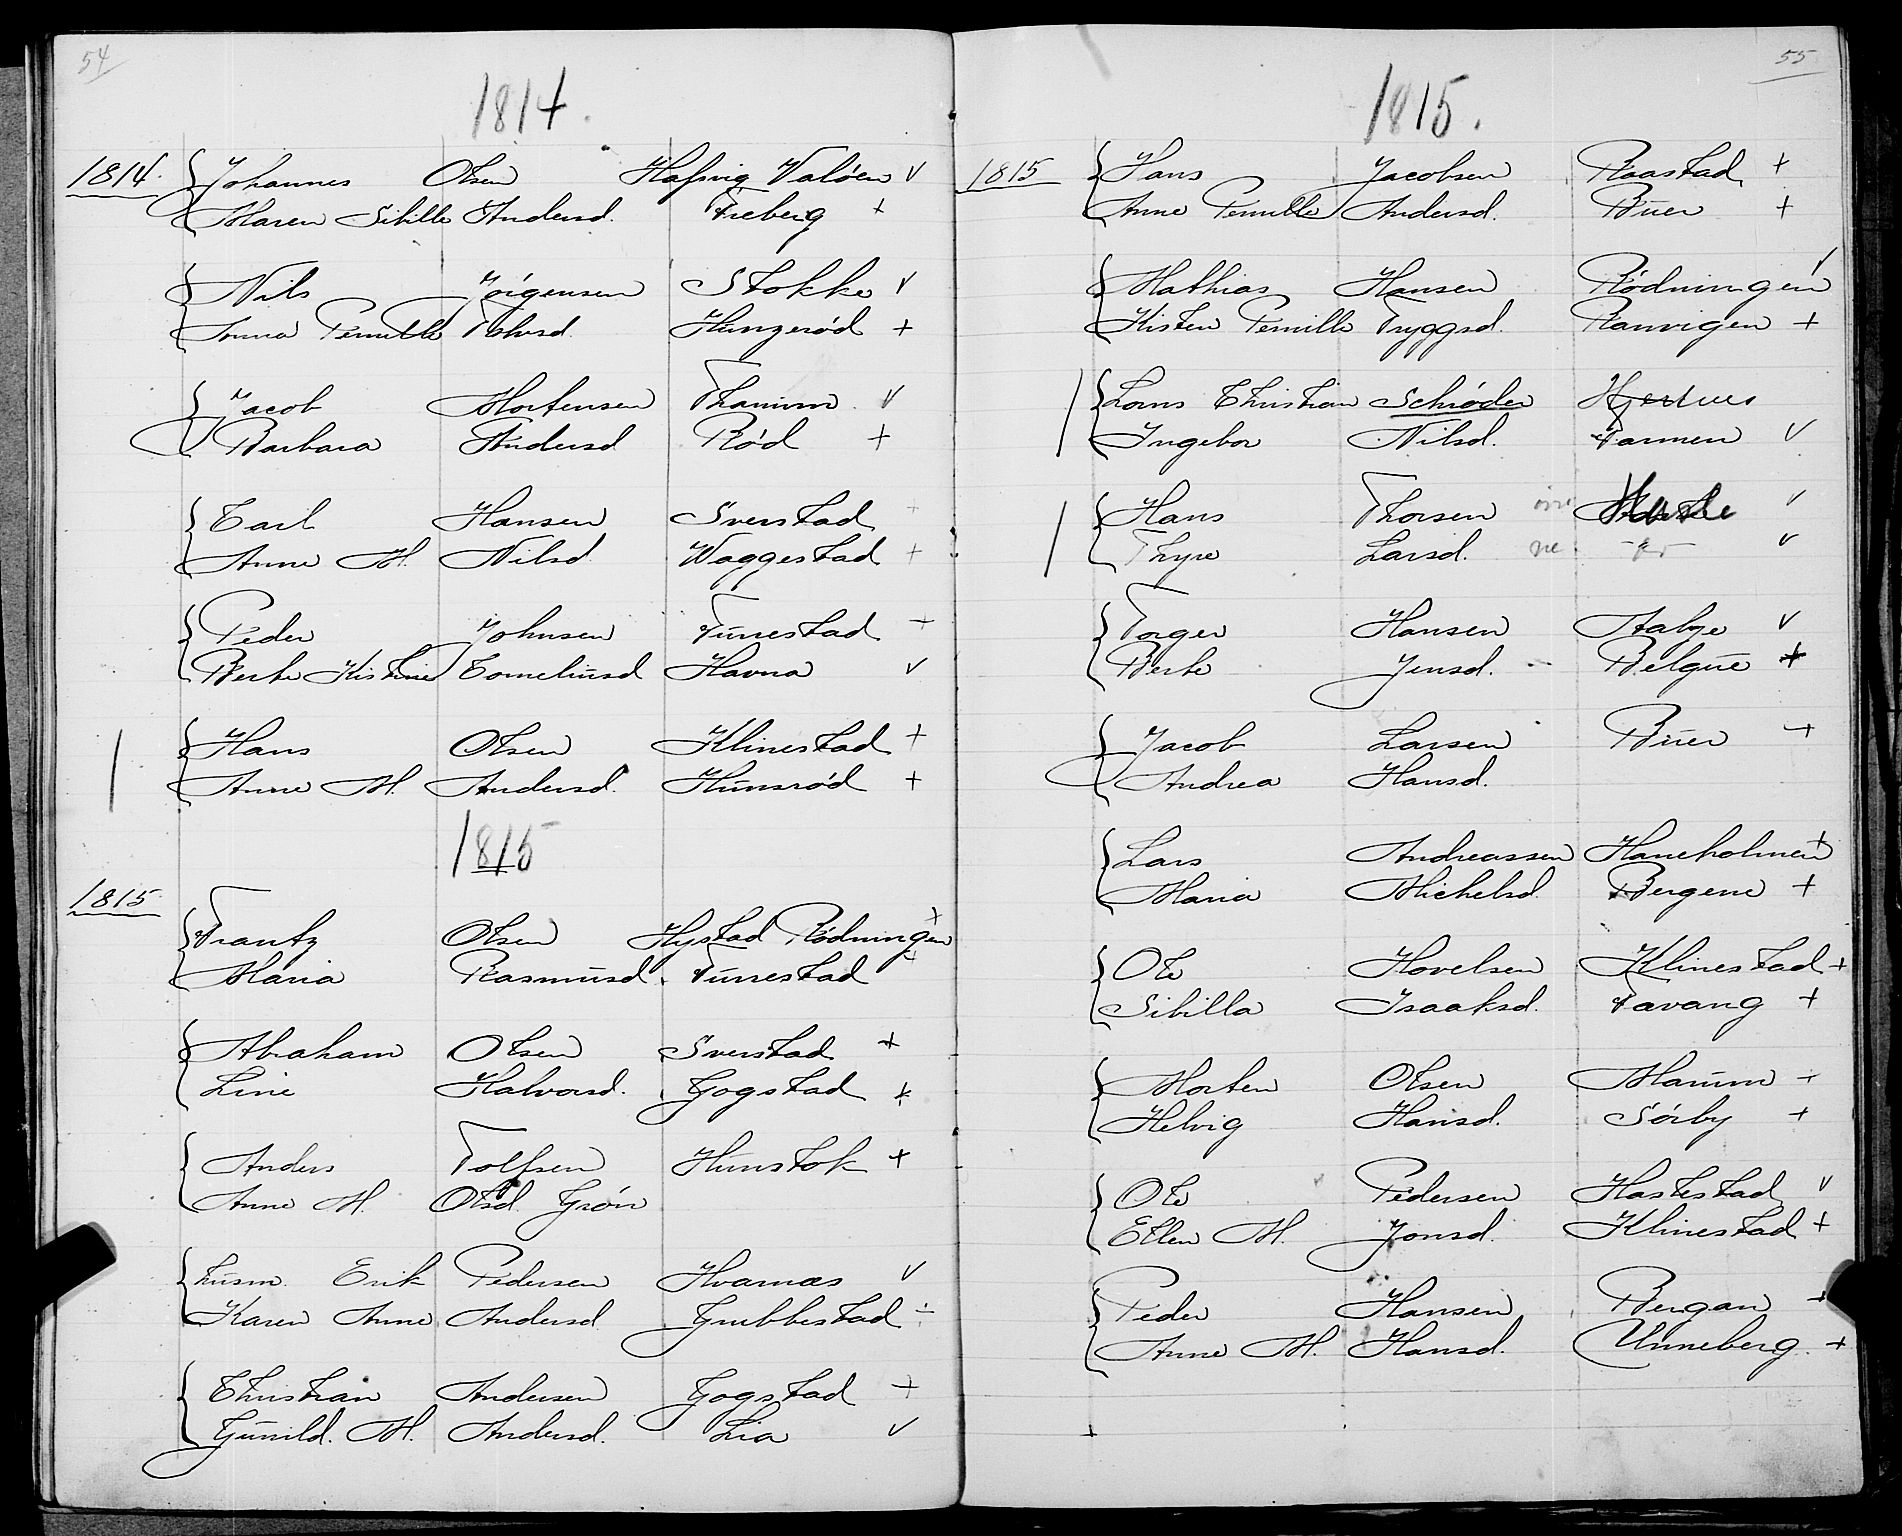 54
1814.
1814. Johannes Olsen Hafsvig Waløen v
Maren Sibille Andersd. Freberg +
Nils Jørgensen Stokke v
Anna Pernille Rolvsd. Hungerød +
Jacob Mortensen Thanum v
Barbara Andersd Rød +
Carl Hansen Sverstad +
Anne M. Nilsd. Waggestad +
Peder Johnsen Furrestad +
Berte Kistine Corneliusd Havna v
Hans Olsen Klinestad +
Anne M. Andersd. Hunsrød +
1815
1815. Frantz Olsen Hystad Rødningen +
Maria Rasmusd. Furrestad +
Abraham Olsen Sverstad +
Line Halvorsd. Gogstad +
Anders Tolfsen Hunstok +
Anne M. Olsd. Grøn
husm. Erik Pedersen Hvarnæs v
Karen Anne Andersd. Grubbestad ÷
Christian Andersen Gogstad +
Gunild. M. Andersd. Lia v
55
1815.
1815 Hans Jacobsen Raastad +
Anne Pernille Andersd. Buer +
Mathias Hansen Rødningen v
Kisten Pernille Tryggsd. Ranvigen +
Lorns Christian Schrøder Hjertnes
Ingebor Nilsd. Farmen v
Hans Thorsen v
Thyre Larsd. v
Torger Hansen Haby v
Berte Jensd. Belgue +
Jacob Larsen Buer +
Andrea Hansd.
Lars Andreassen Haneholmen +
Maria Michelsd. Bergene +
Ole Hovelsen Klinestad +
Sibilla Isaaksd. Favang +
Morten Olsen Marum +
Helvig Hansd. Sørby +
Ole Pedersen Hastestad v
Ellen M. Jonsd. Klinestad +
Peder Hansen Bergan +
Anne M. Hansd. Unneberg. +